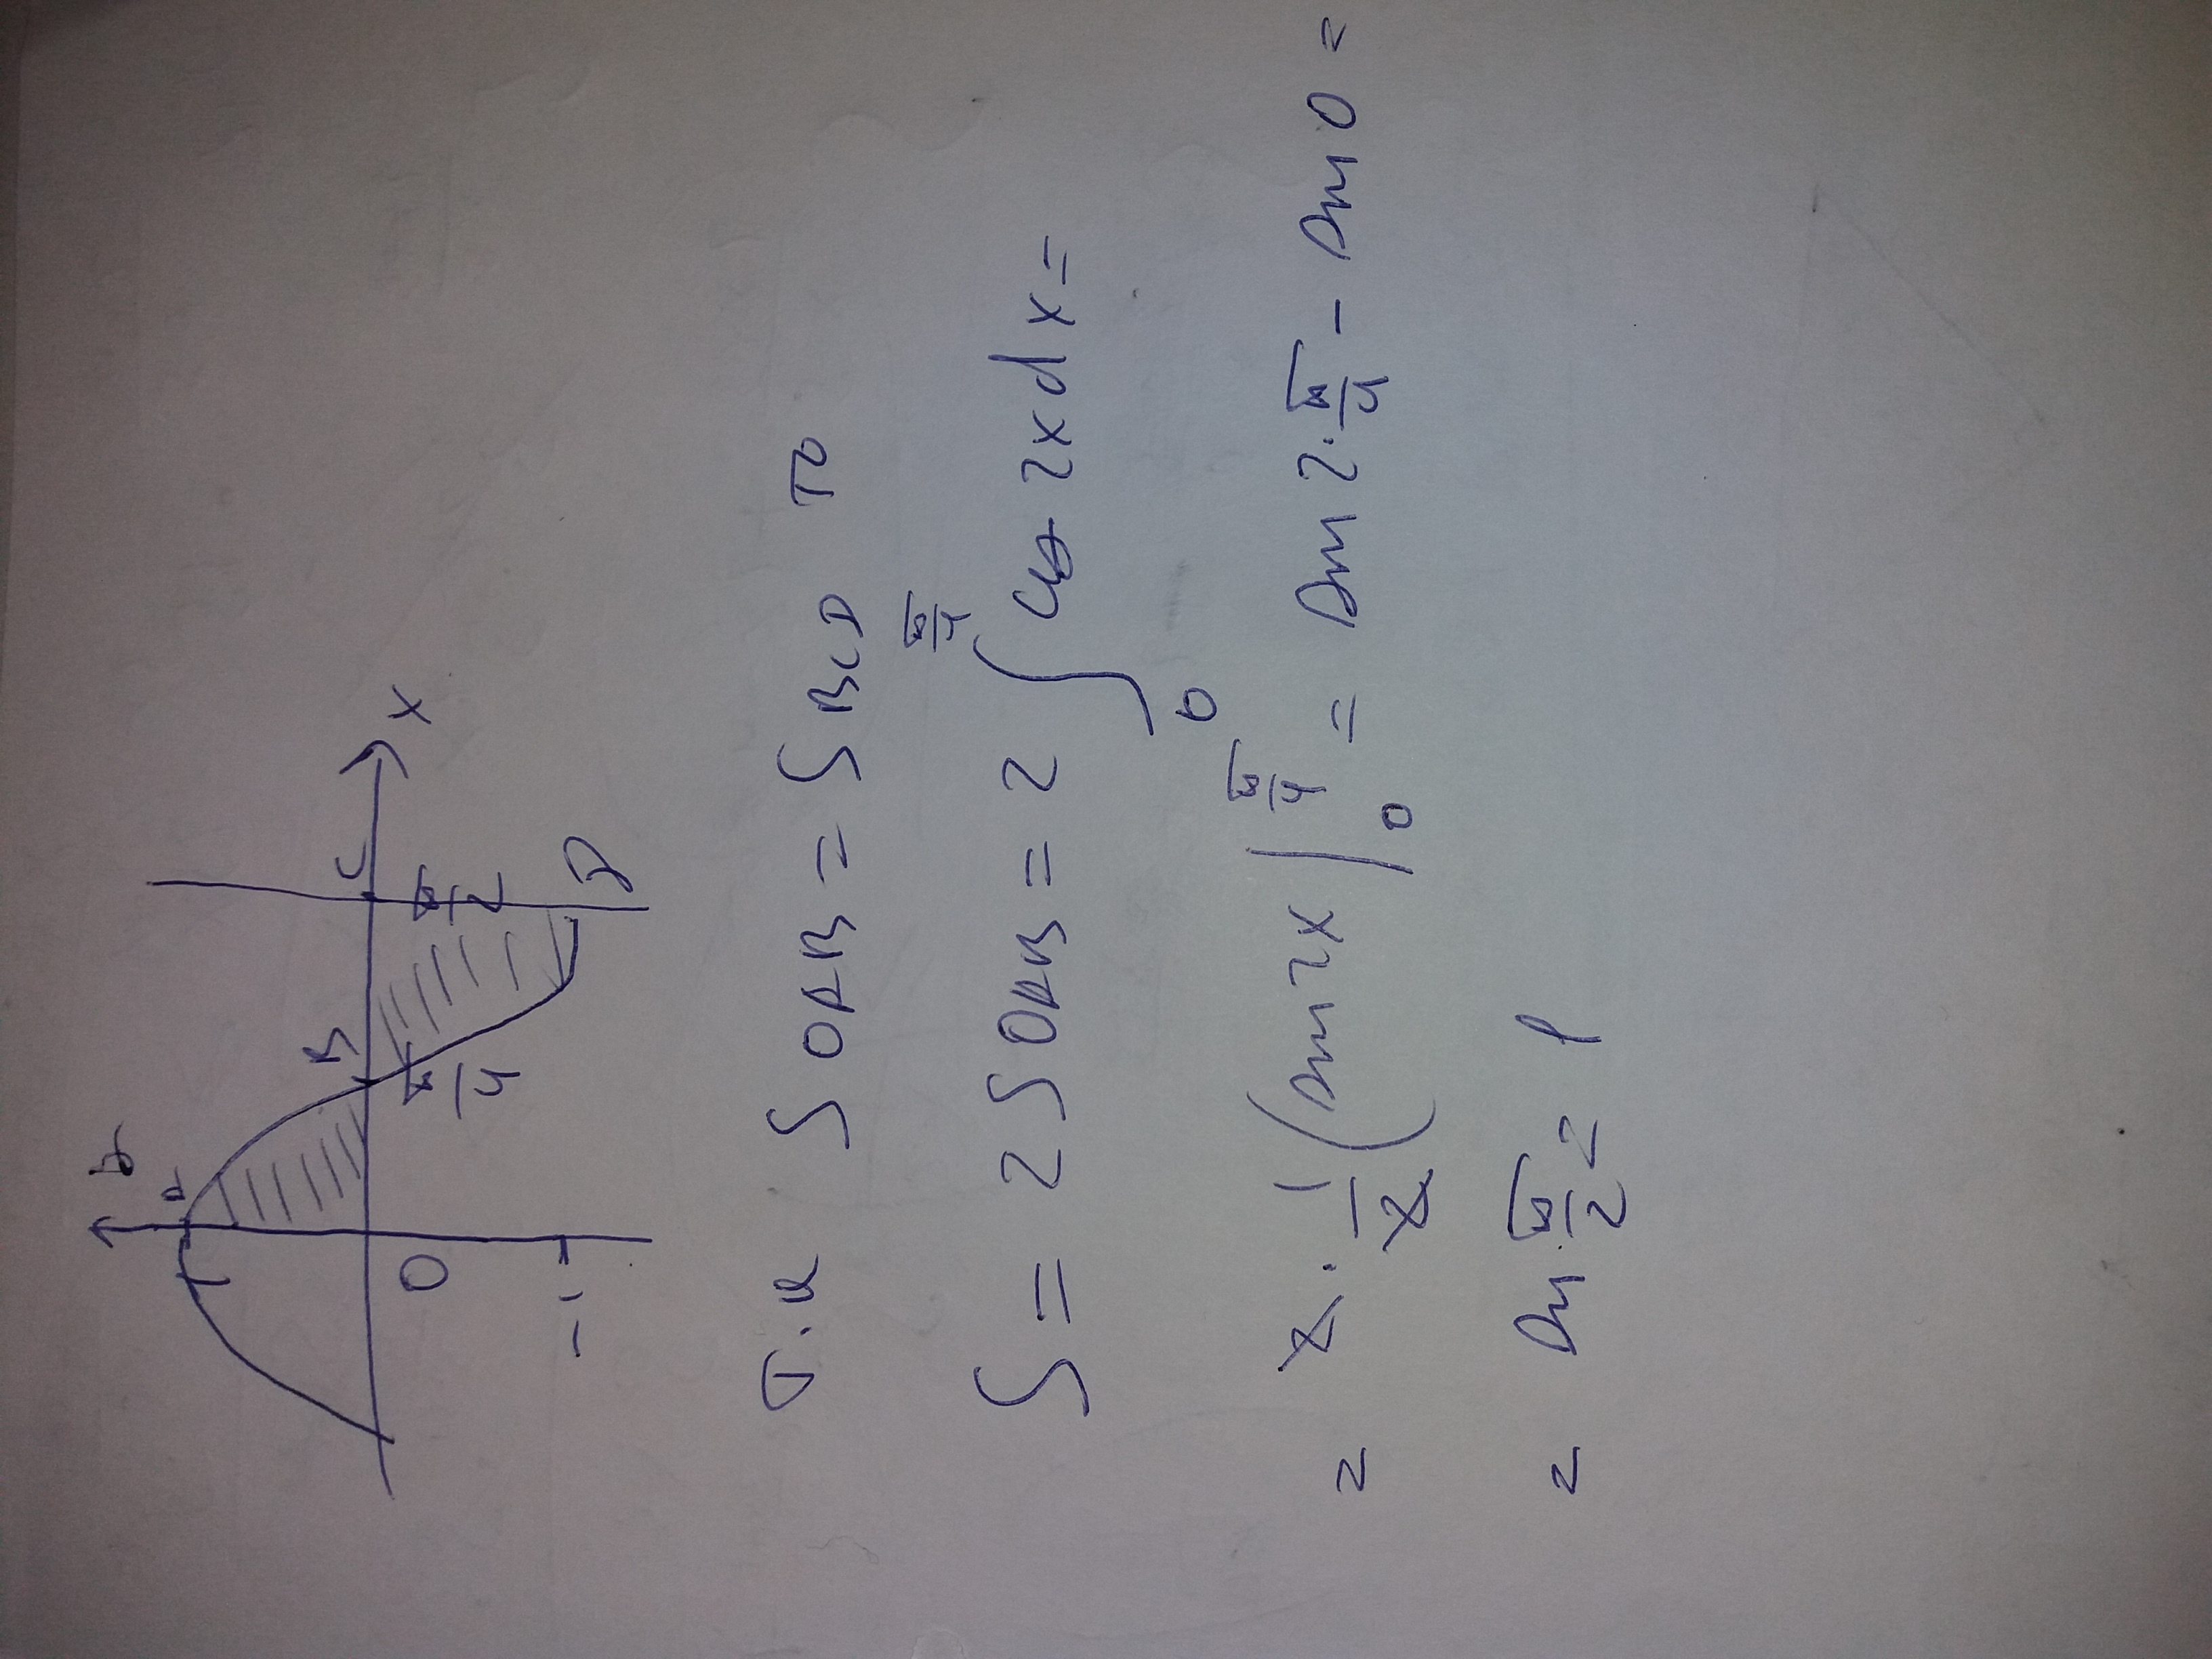 y
A
B
C
x
O
π/4
π/2
-1
D
т.к S OAB = S BCD то
S = 2 S OAB = 2 ∫₀^(π/4) cos 2x dx =
= 2 · 1/2 (sin 2x |₀^(π/4) = sin 2 · π/4 - sin 0 =
= sin π/2 = 1